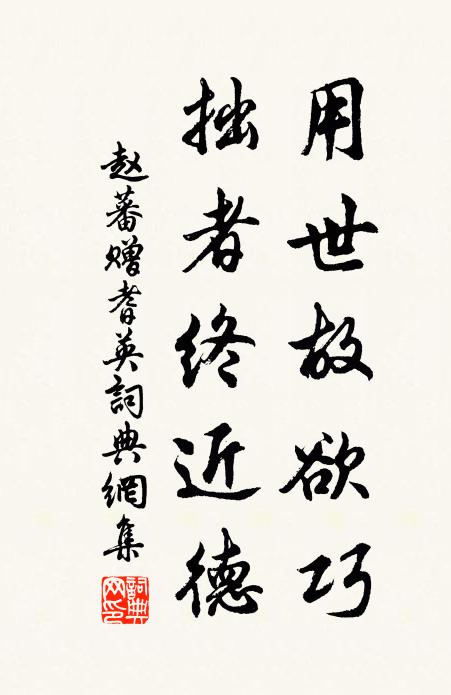 用世故欲巧
拙者终近德
赵蕃赠耆英詞典網集
詞典网印